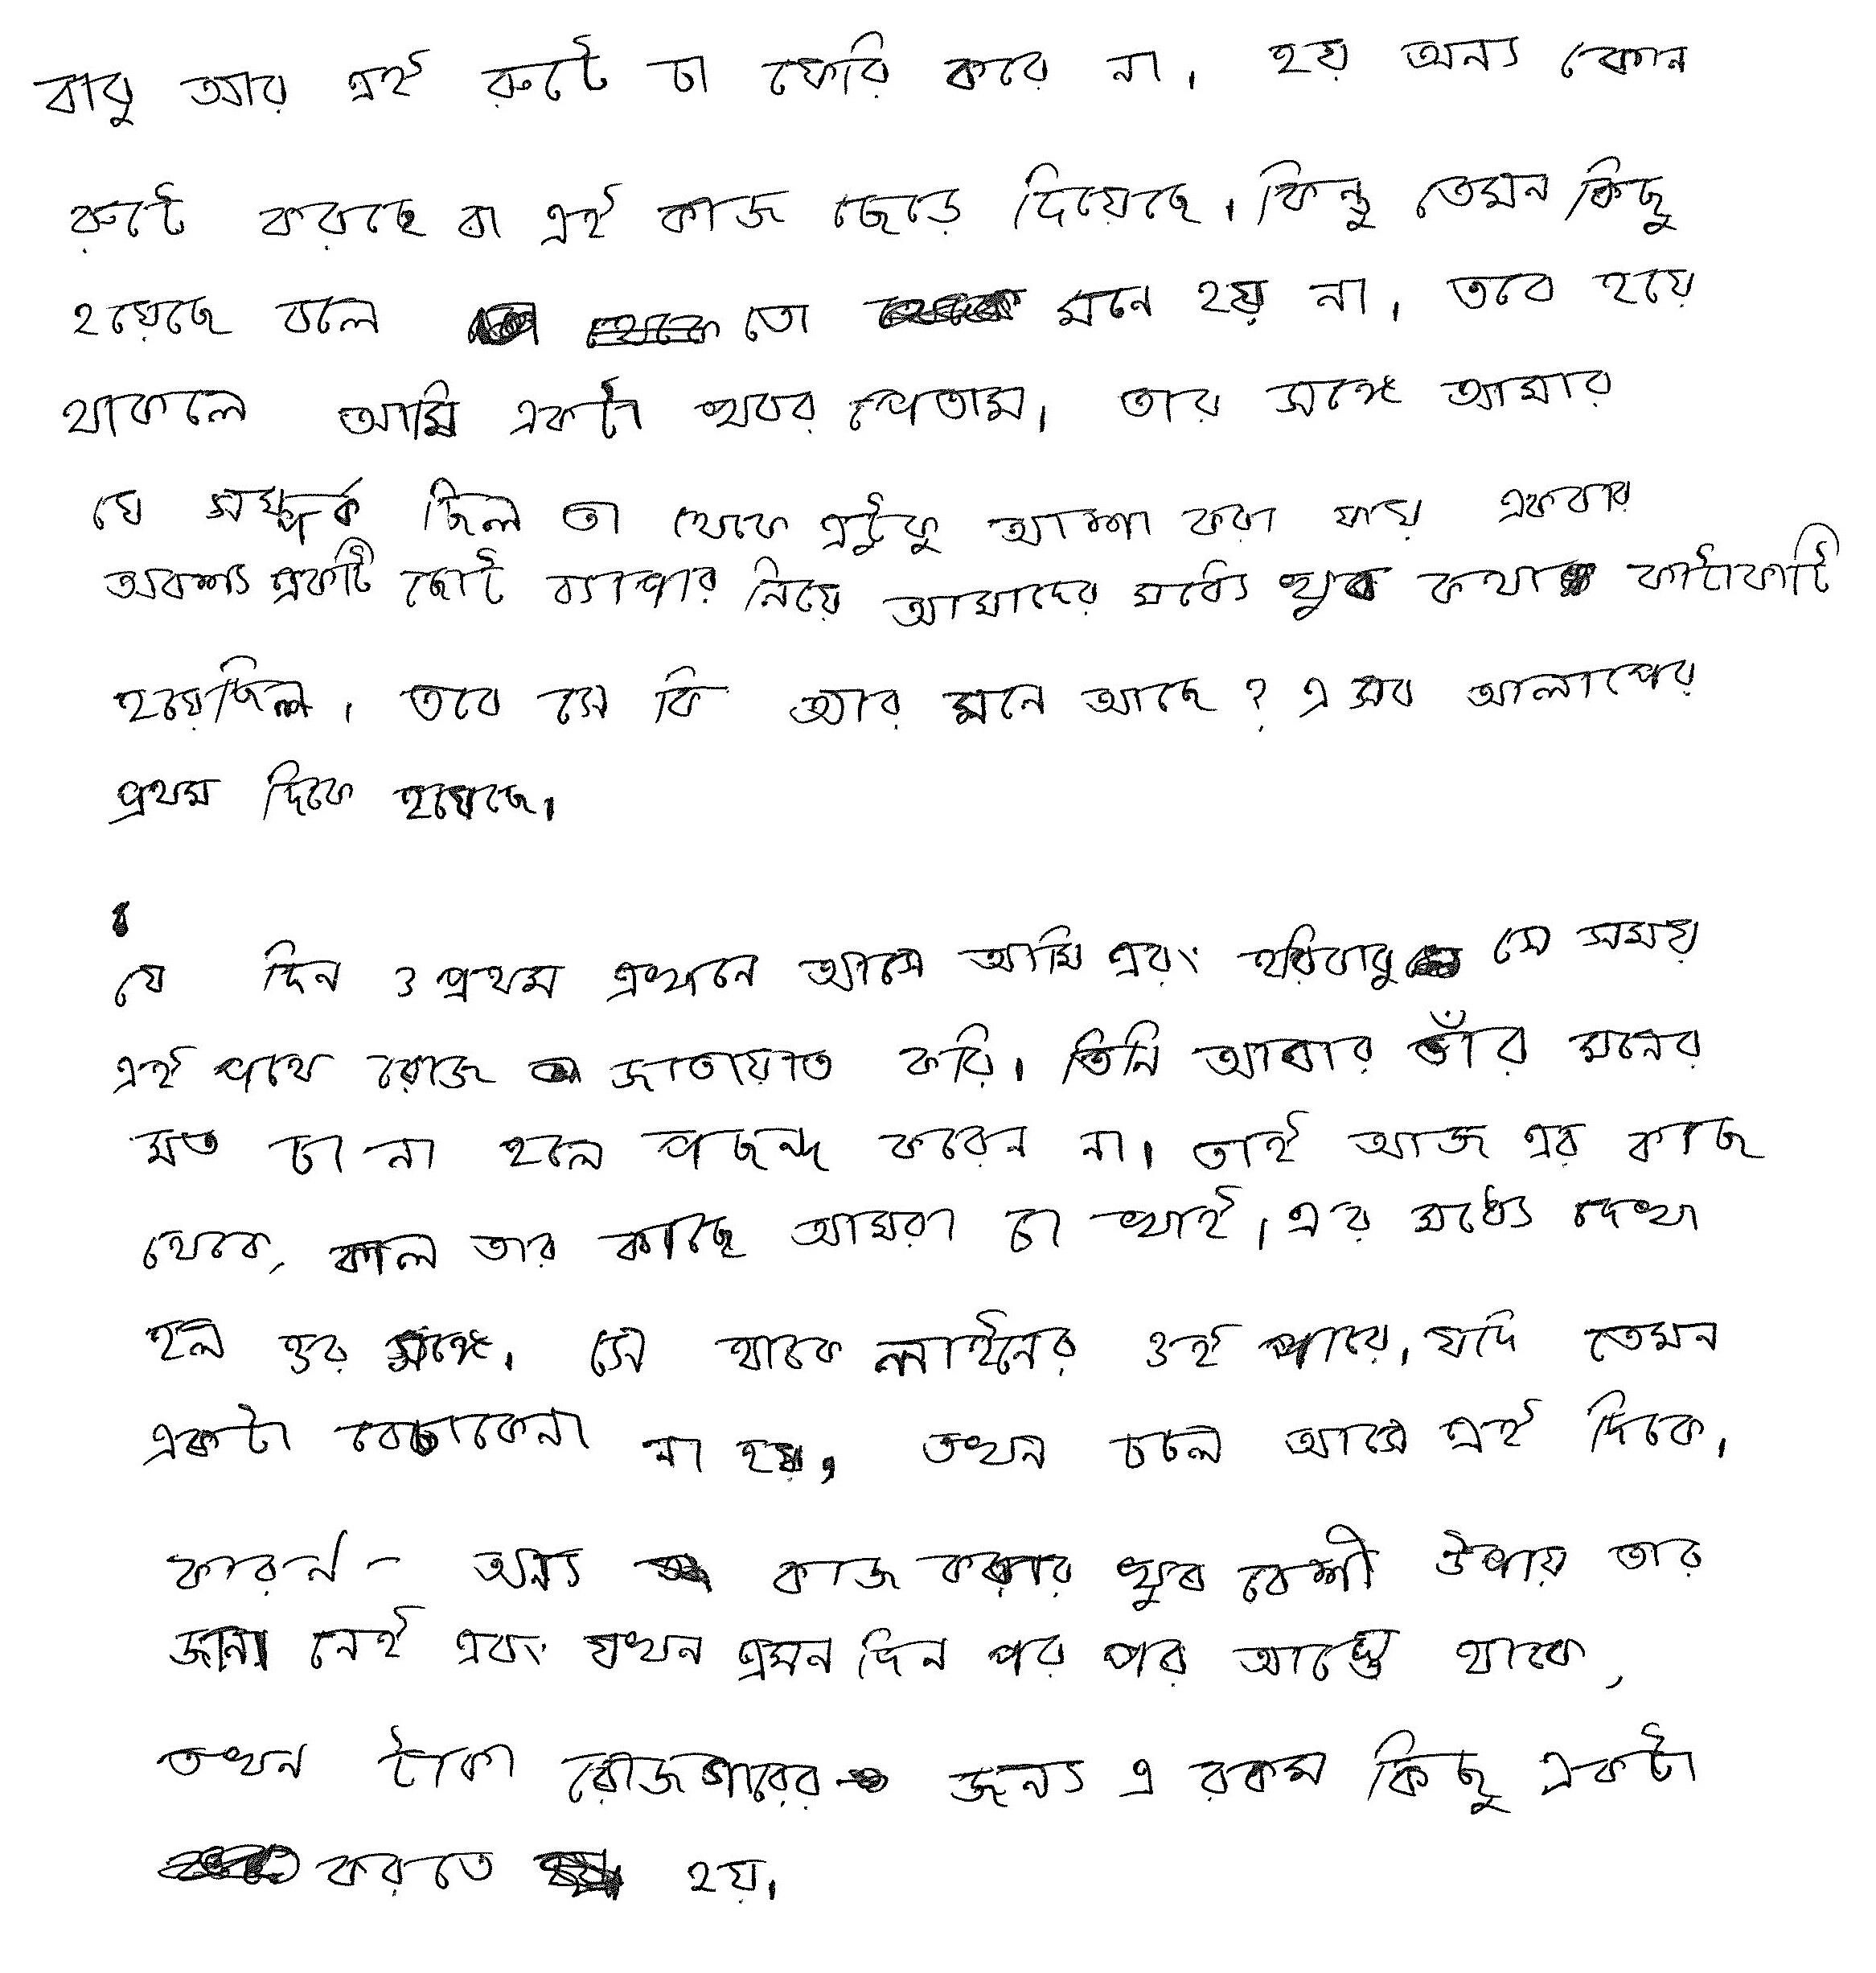 বাবু আর এই রুটে চা ফেরি করে না। হয় অন্য কোন
রুটে করছে বা এই কাজ ছেড়ে দিয়েছে। কিন্তু তেমন কিছু
হয়েছে বলে তো মনে হয় না। তবে হয়ে
থাকলে আমি একটা খবর পেতাম। তার সঙ্গে আমার
যে সম্পর্ক ছিল তা থেকে এটুকু আশা করা যায় একবার
অবশ্য একটি ছোট ব্যাপার নিয়ে আমাদের মধ্যে খুব কথা কাটাকাটি
হয়েছিল। তবে সে কি আর মনে আছে? এ সব আলাপের
প্রথম দিকে হয়েছে।
যে দিন ও প্রথম এখানে আসে আমি এবং হরিবাবু সে সময়
এই পথে রোজ জাতায়াত করি। তিনি আবার তাঁর মনের
মত চা না হলে পছন্দ করেন না। তাই আজ এর কাছ
থেকে, কাল তার কাছে আমরা চা খাই। এর মধ্যে দেখা
হল ওর সঙ্গে। সে থাকে লাইনের ওই পারে। যদি তেমন
একটা বেচাকেনা না হয়, তখন চলে আসে এই দিকে।
কারন - অন্য কাজ করার খুব বেশী উপায় তার
জানা নেই এবং যখন এমন দিন পর পর আসে থাকে,
তখন টাকা রোজগারের জন্য এ রকম কিছু একটা
করতে হয়।